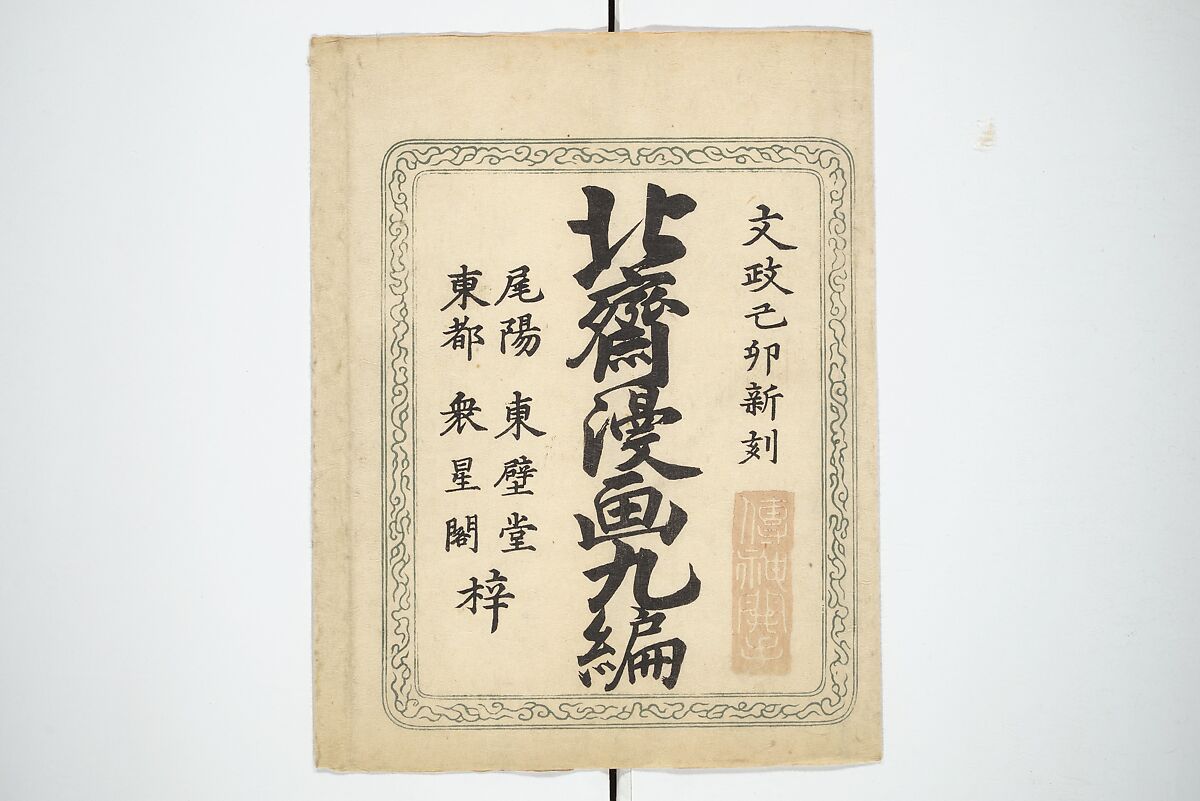 文政己卯新刻
北齋漫画九編
尾陽 東壁堂
東都 衆星閣
梓